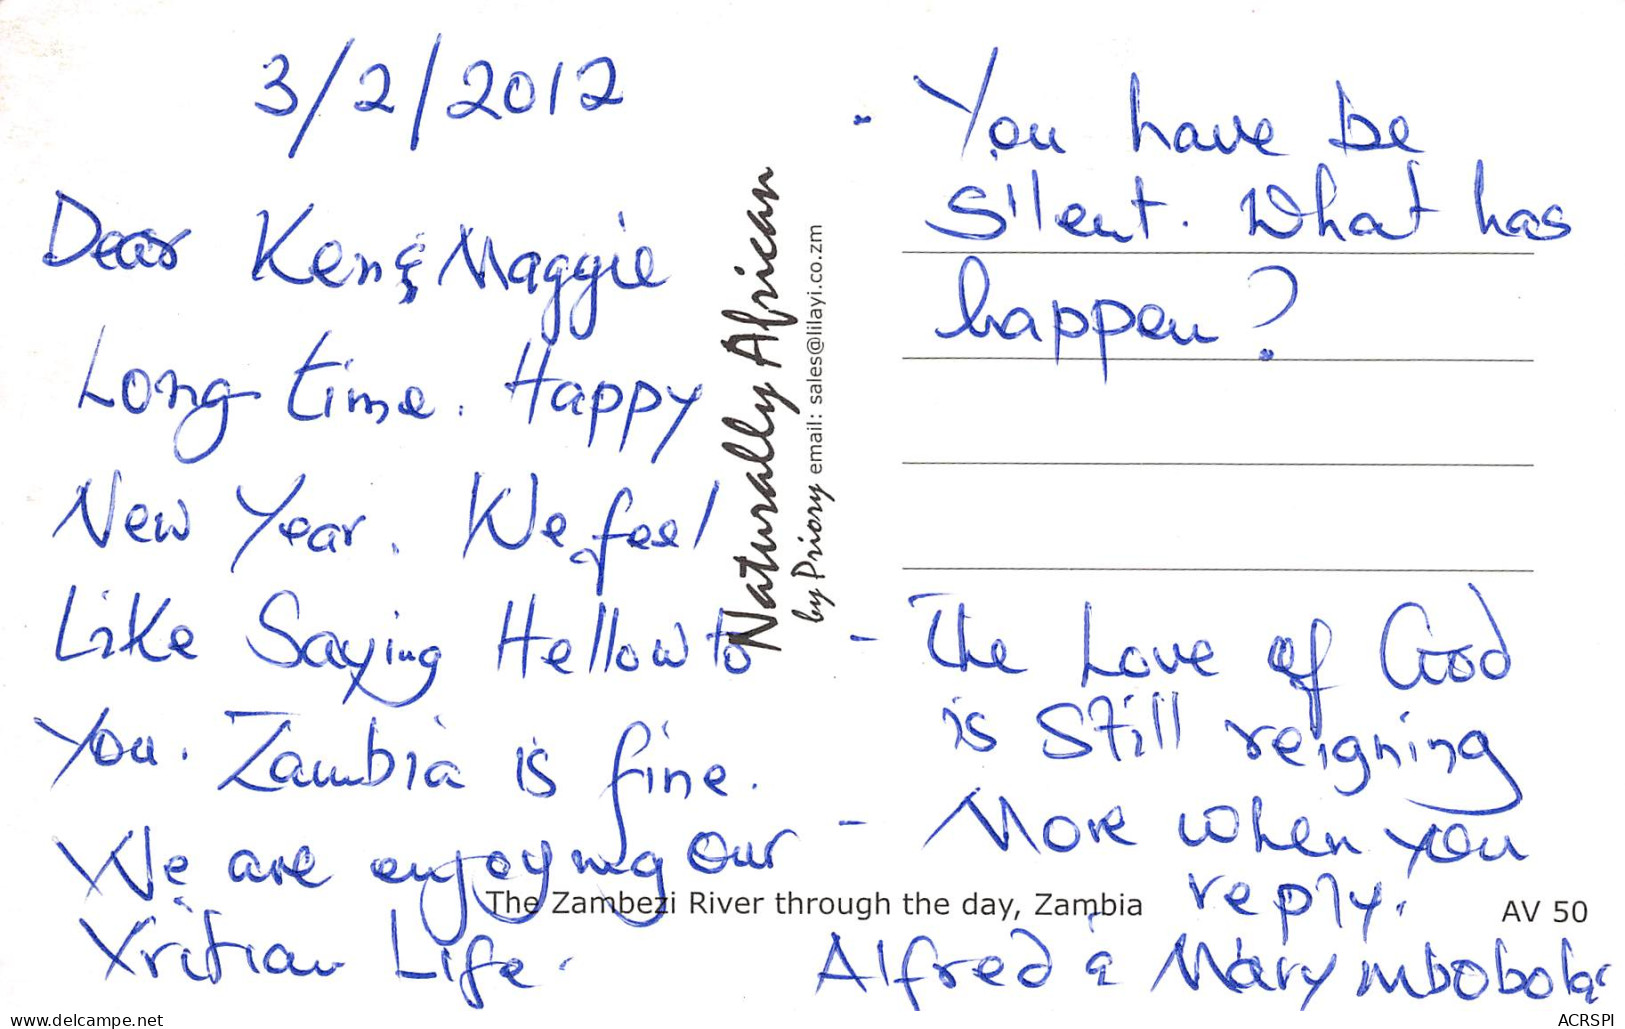 3/2/2012
Dear Ken & Maggie
Long time. Happy
New Year. We feel
Like Saying Hellow to
You. Zambia is fine.
We are enjoying our
Xritian Life.
Naturally African
by Priory email: sales@lilayi.co.zm
- You have be
silent. What has
happen?
- The Love of God
is still reigning
- More when you
reply.
Alfred & Mary
The Zambezi River through the day, Zambia
AV 50
www.delcampe.net
ACRSPI